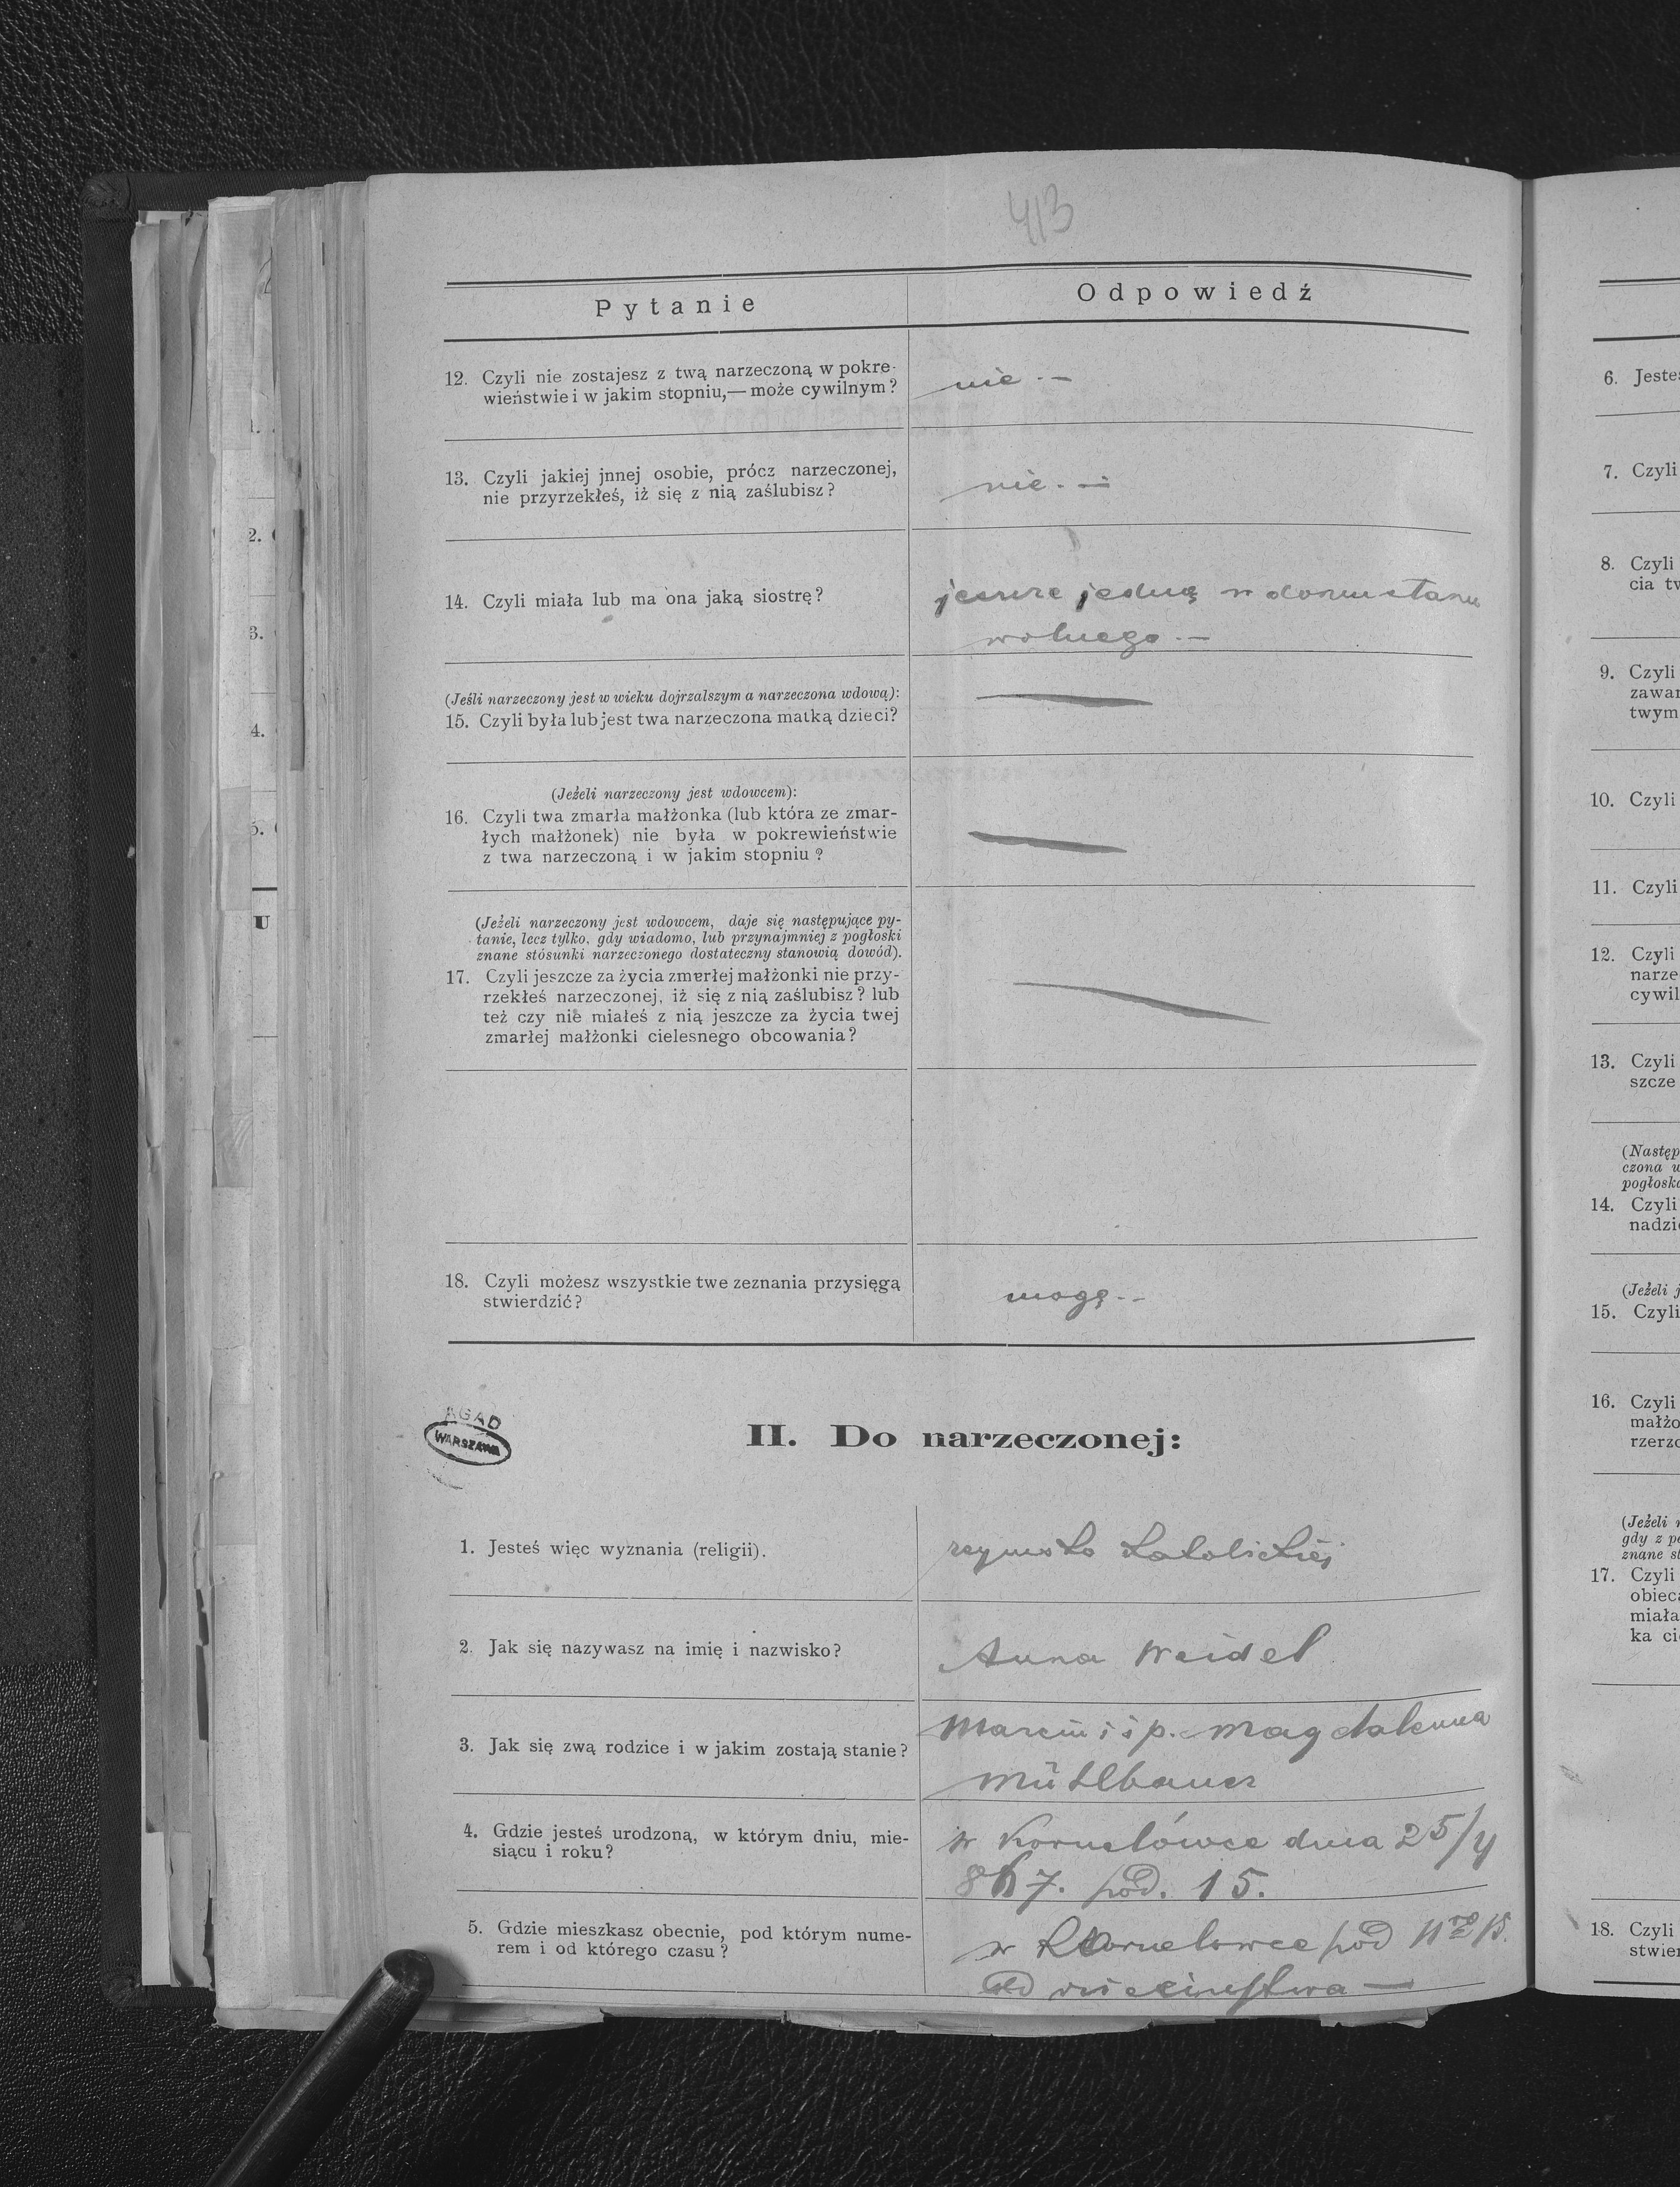 413
Pytanie
Odpowiedź
12. Czyli nie zostajesz z twą narzeczoną w pokre-
wieństwie i w jakim stopniu,— może cywilnym?
nie. —
13. Czyli jakiej jnnej osobie, prócz narzeczonej,
nie przyrzekłeś, iż się z nią zaślubisz?
nie. —
14. Czyli miała lub ma ona jaką siostrę?
jeszcze jedną w domu stanu
wolnego. —
(Jeśli narzeczony jest w wieku dojrzalszym a narzeczona wdową):
15. Czyli była lub jest twa narzeczona matką dzieci?
(Jeżeli narzeczony jest wdowcem):
16. Czyli twa zmarła małżonka (lub która ze zmar-
łych małżonek) nie była w pokrewieństwie
z twa narzeczoną i w jakim stopniu?
(Jeżeli narzeczony jest wdowcem, daje się następujące py-
tanie, lecz tylko, gdy wiadomo, lub przynajmniej z pogłoski
znane stósunki narzeczonego dostateczny stanowią dowód).
17. Czyli jeszcze za życia zmarłej małżonki nie przy-
rzekłeś narzeczonej, iż się z nią zaślubisz? lub
też czy nie miałeś z nią jeszcze za życia twej
zmarłej małżonki cielesnego obcowania?
18. Czyli możesz wszystkie twe zeznania przysięgą
stwierdzić?
mogę. —
AGAD
WARSZAWA
II. Do narzeczonej:
1. Jesteś więc wyznania (religii).
rzymsko katolickiej
2. Jak się nazywasz na imię i nazwisko?
Anna Weidel
3. Jak się zwą rodzice i w jakim zostają stanie?
Marcin i ś p. Magdalenna
Mühlbauer
4. Gdzie jesteś urodzoną, w którym dniu, mie-
siącu i roku?
w Kornelówce dnia 25/
pod. 15.
5. Gdzie mieszkasz obecnie, pod którym nume-
rem i od którego czasu?
w Kornelowce pod
od
6. Jesteś
7. Czyli
8. Czyli
cia tw
9. Czyli
zawar
twym
10. Czyli
11. Czyli
12. Czyli
narze
cywil
13. Czyli
szcze
(Następ
czona w
pogłosk
14. Czyli
nadzi
(Jeżeli j
15. Czyli
16. Czyli
małżo
rzerzo
(Jeżeli
gdy z p
znane st
17. Czyli
obiec
miała
ka ci
18. Czyli
stwier